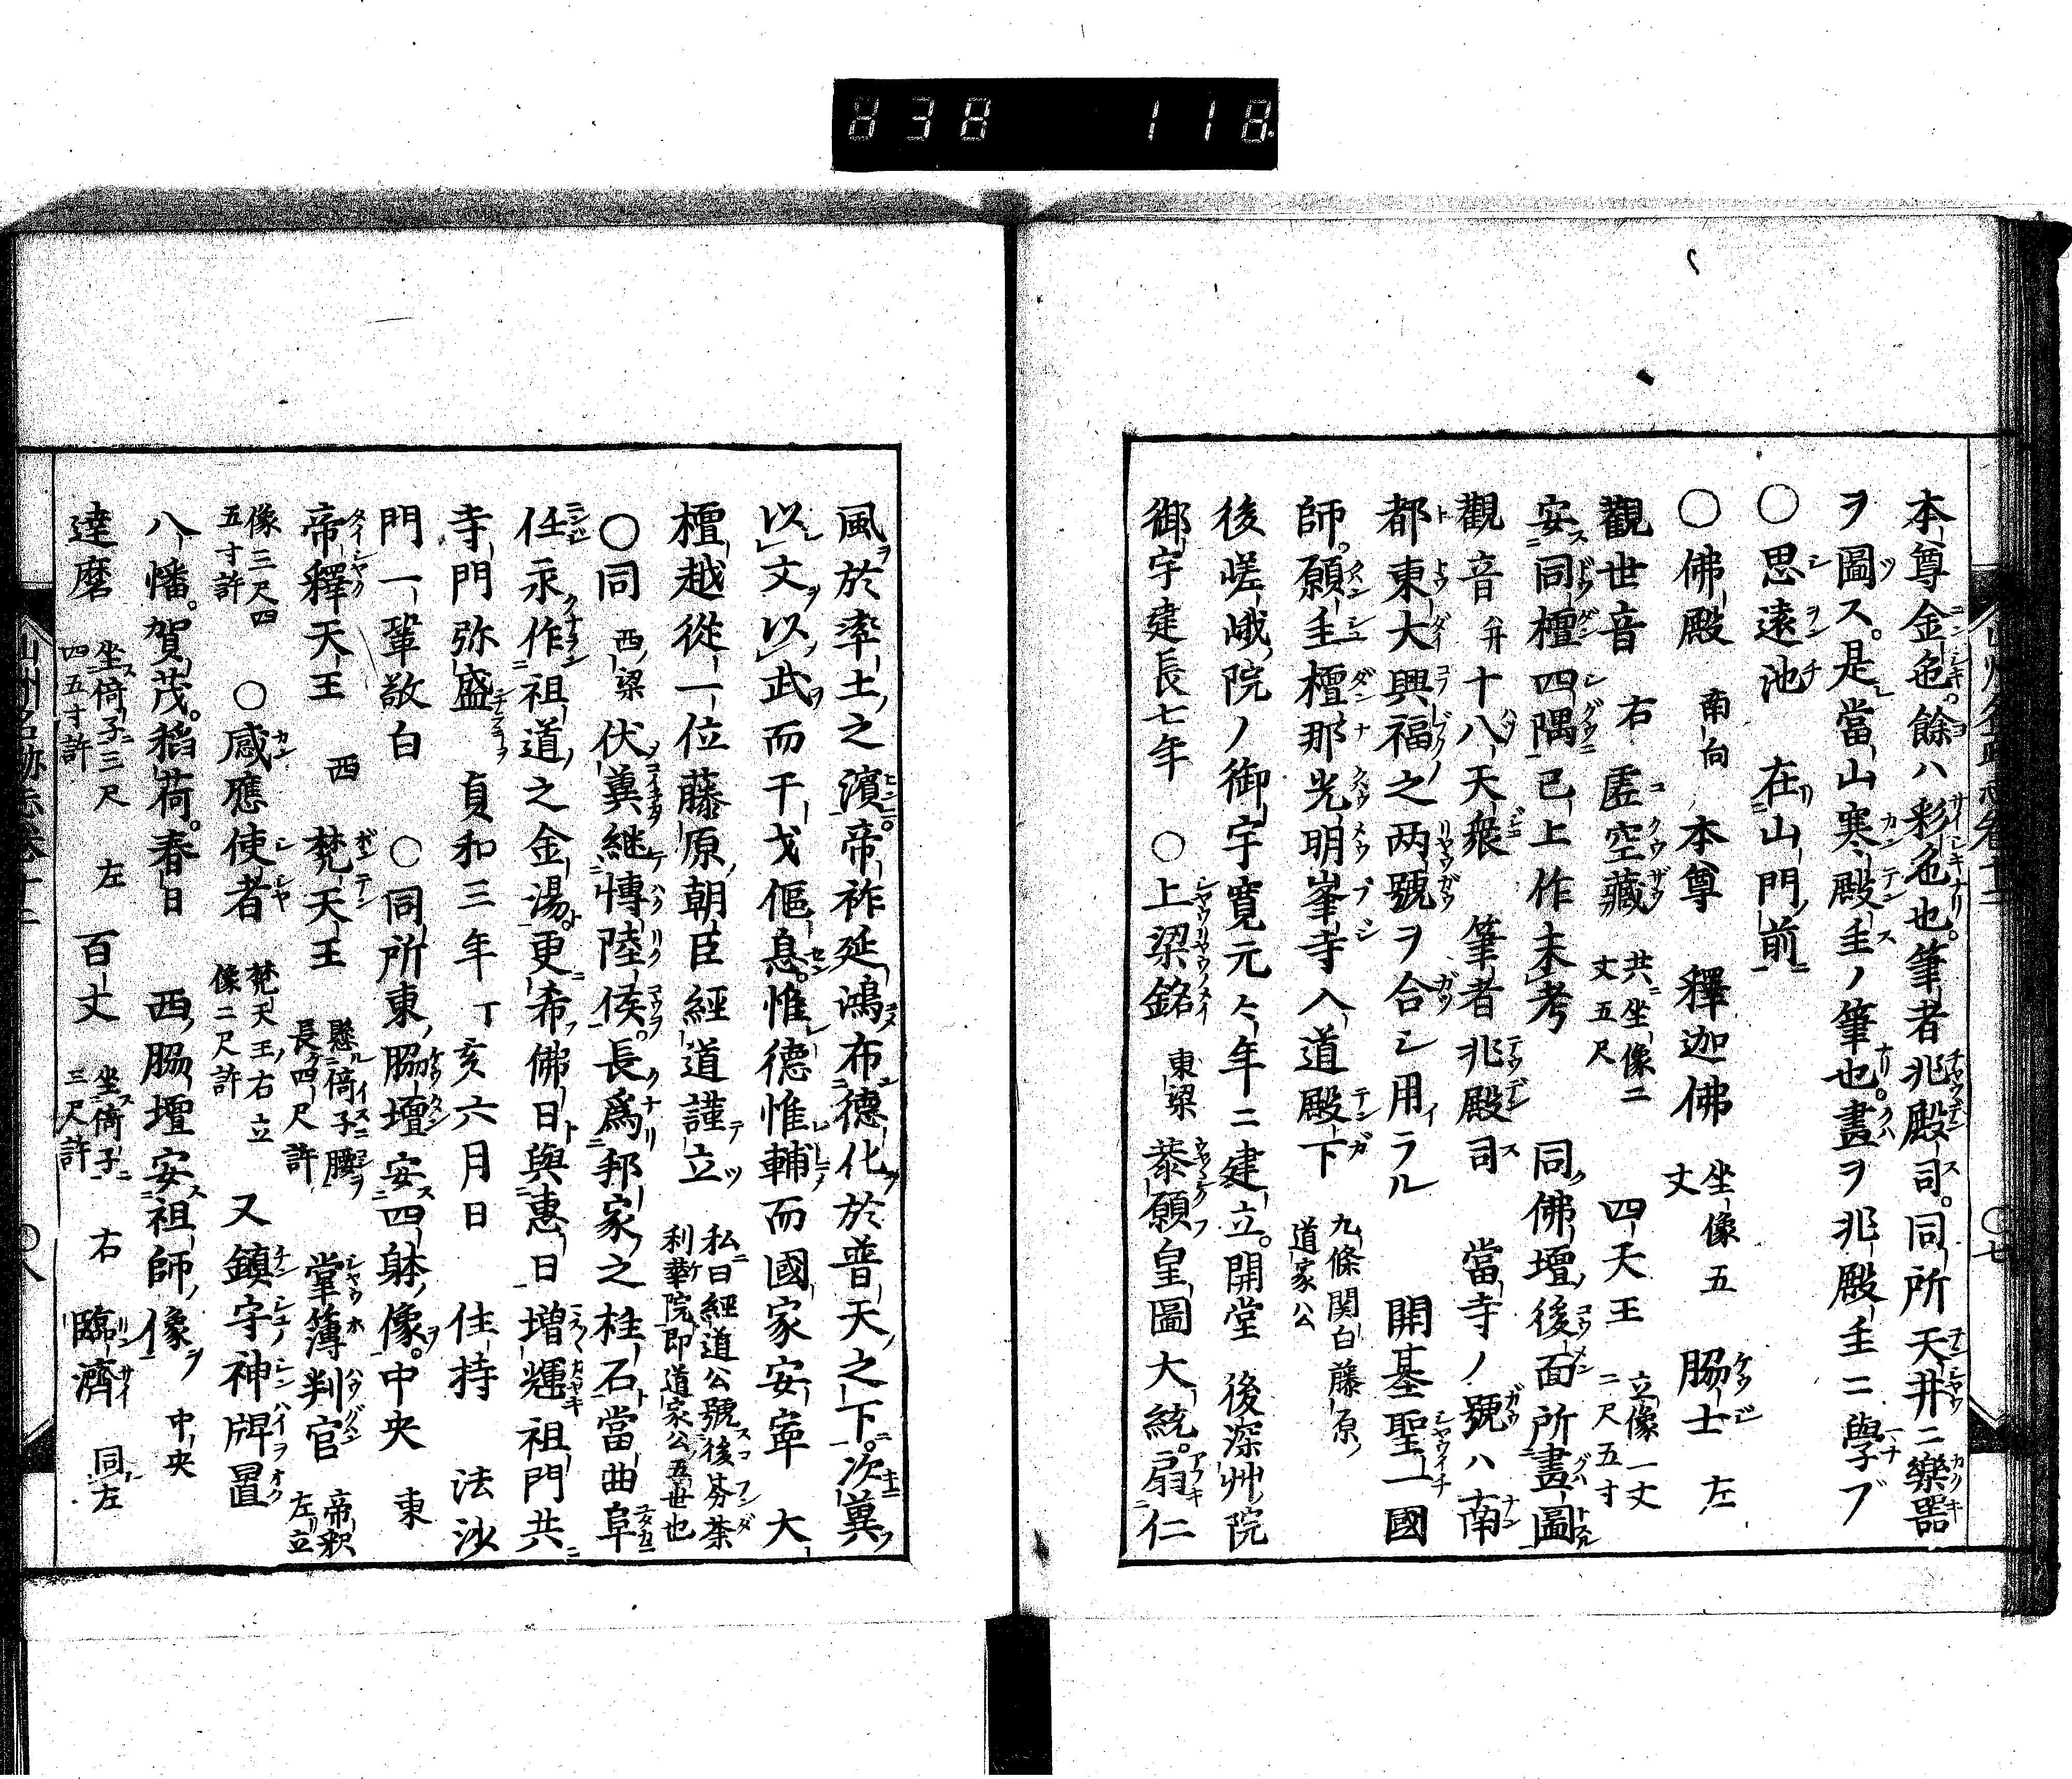 838 118
本尊金色。餘ハ彩色也。筆者兆殿司。同所天井ニ樂器
ヲ圖ス。是當山寒殿主ノ筆也。畫ヲ兆殿主ニ學ブ
○思遠池 在山門前
○佛殿 南向 本尊 釋迦佛 坐像五丈 脇士 左
觀世音 右 虛空藏 共坐像二丈五尺 四天王 立像一丈二尺五寸
安同檀四隅已上作未考 同佛壇後面所畫圖
觀音 并 十八天衆 筆者兆殿司 當寺ノ號ハ南
都東大興福之两號ヲ合シ用ラル 開基聖一國
師。願主檀那光明峯寺入道殿下 九條関白藤原道家公
後嵯峨院ノ御宇寬元々年ニ建立。開堂 後深艸院
御宇建長七年 ○上梁銘 東梁 恭願皇圖大統。扇仁
風於率土之濱。帝祚延鴻布德化於普天之下。次冀
以文以武而干戈偃息。惟德惟輔而國家安寧 大
檀越從一位藤原朝臣經道謹立 私曰經道公號後芬荼利華院即道家公五世也
○同 西梁 伏冀継慱陸侯。長爲邦家之柱石當曲阜
任永作祖道之金湯。更希佛日與惠日增輝祖門共
寺門弥盛 貞和三年 丁亥六月日 住持 法沙
門一鞏敬白 ○同所東脇壇安四躰像。中央 東
帝釋天王 西 梵天王 懸倚子腰長四尺許 掌簿判官 帝釈左立
像三尺四五寸許 ○感應使者 梵天王右立像二尺許 又鎮守神牌置
八幡。賀茂。稻荷。春日 西脇壇安祖師像 中央
達磨 坐倚子三尺四五寸許 左 百丈 坐倚子三尺許 右 臨濟 同左